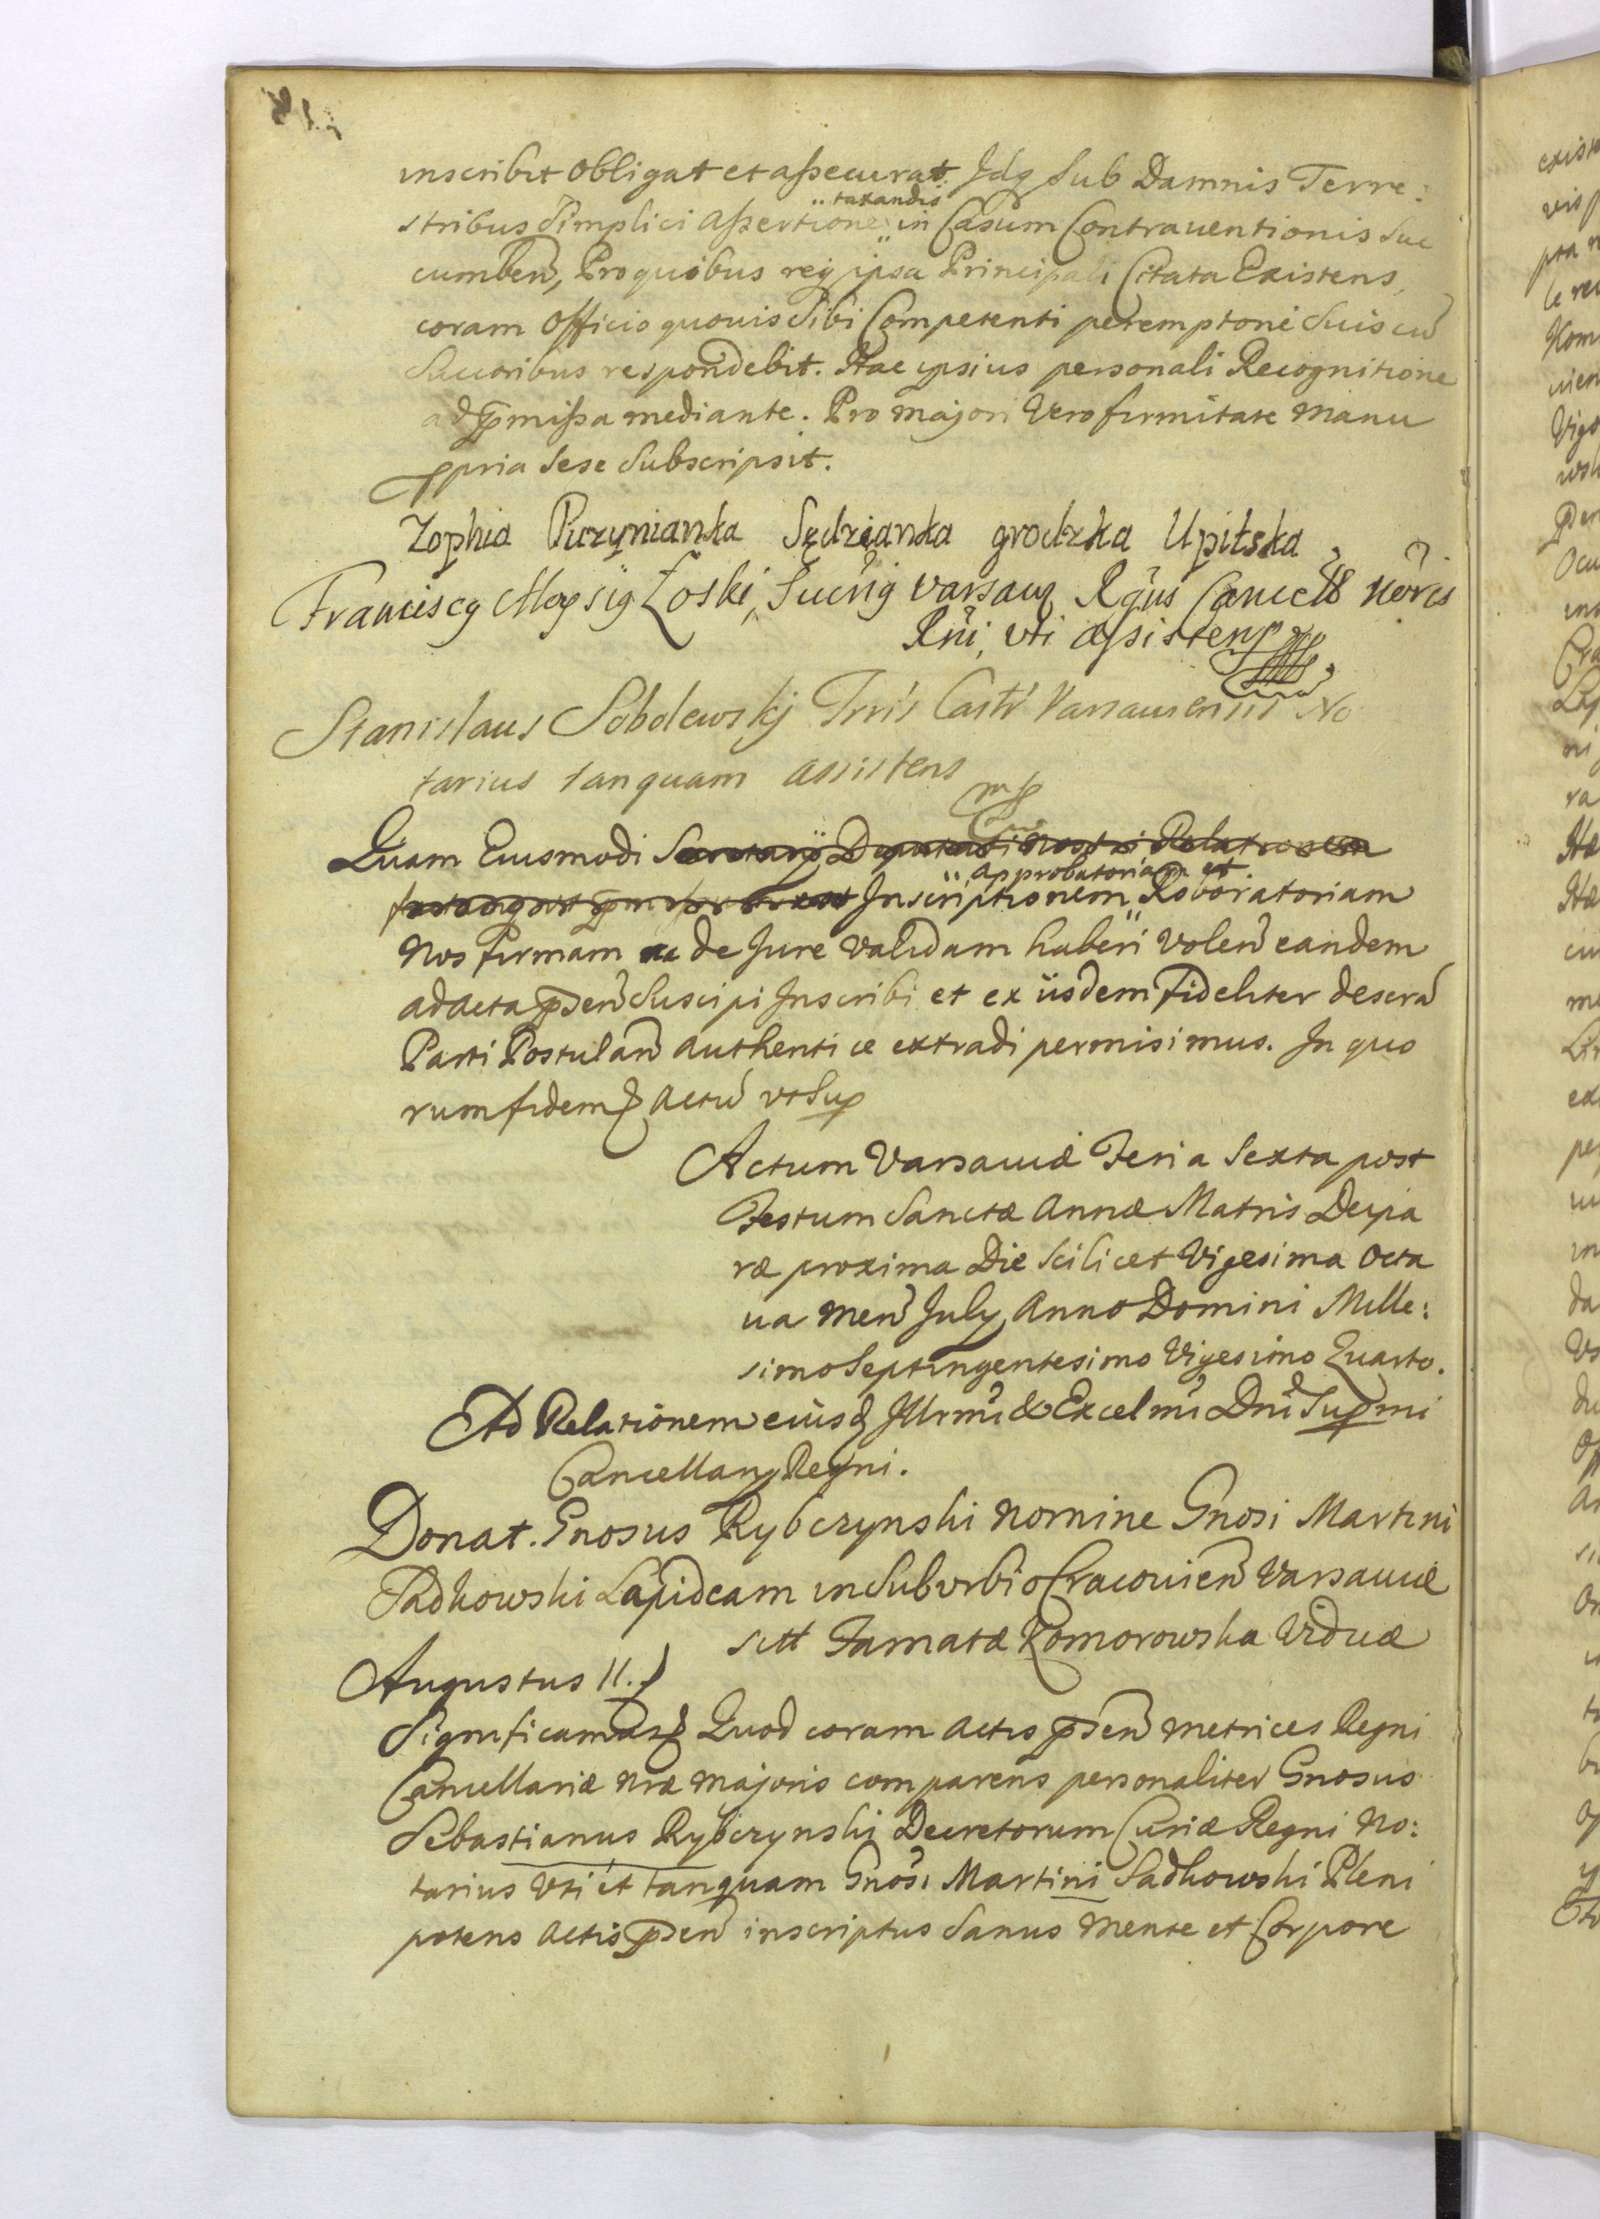 inscribit obligat et assecurat. Idq̃ Sub Damnis Terre:
¨taxandis
stribus Simplici Assertione ¨in Casum Contrauentionis Suc
cumben̄, Pro quibus reg̃ ipsa Principali Citata Existens,
coram Officio quouis Sibi Competenti peremptorie Suis cū
Succoribus respondebit. Hac ipsius personali Recognitione
ad p̄missa mediante. Pro majori Vero firmitate manu
ppria Sese Subscripsit.
Zophia Puzynianka Sędzianka grodzka Upitska
Franciscg Aloysig Łoski, Varsaug Rgus Cancell
Rni, vti assistens mp
Stanislaus Sobolewskj Trris Castr Varsauiensis No
tarius tanquam assistens
mp
Quam Eiusmodi Secretarij Deputati nostri Relationem
¨approbatoriam et
Inscriptionem ¨Roboratoriam
Nos firmam ac de Jure Validam haberi Volen̄ eandem
ad acta p̄sen̄ Suscipi Inscribi et ex iisdem fideliter descrā
Parti Postulan̄ authentice extradi permisimus. In quo
rum fidem Actū vt Sup
Actum Varsauiæ Feria Sexta post
Festum Sanctæ Annæ Matris Deipa
ræ proxima Die Scilicet Vigesima Octa
ua Men̄ July Anno Domini Mille:
simo Septingentesimo Vigesimo Quarto.
Ad Relationem eiusd Illrmi & Excelmi Dni Supmi
Cancellarij Regni.
Donat. Gnosus Rybczynski nomine Gnosi Martini
Sadkowski Lapideam in Suburbio Cracouien̄ Varsauiæ
sitt Famatæ Komorowska Viduæ
Augustus II.
Significamus Quod coram Actis p̄sen̄ metrices Regni
Cancellariæ nræ majoris comparens personaliter Gnosus
Sebastianus Rybczynski Decretorum Curiæ Regni No:
tarius Vti et tanquam Gnosi Martini Sadkowski Pleni
potens Actis p̄sen̄ inscriptus Sanus mente et Corpore